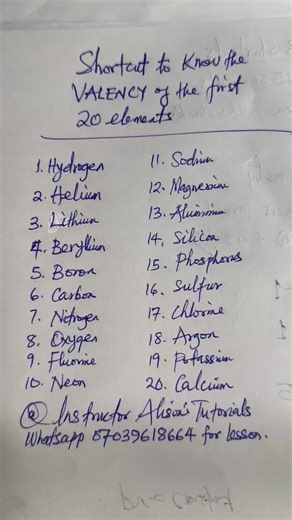 Shortcut to Know the
VALENCY of the first
20 elements
1. Hydrogen
2. Helium
3. Lithium
4. Beryllium
5. Boron
6. Carbon
7. Nitrogen
8. Oxygen
9. Fluorine
10. Neon
11. Sodium
12. Magnesium
13. Aluminium
14. Silicon
15. Phosphorus
16. Sulfur
17. Chlorine
18. Argon
19. Potassium
20. Calcium
@ Instructor Alisia's Tutorials
Whatsapp 07039618664 for lesson.